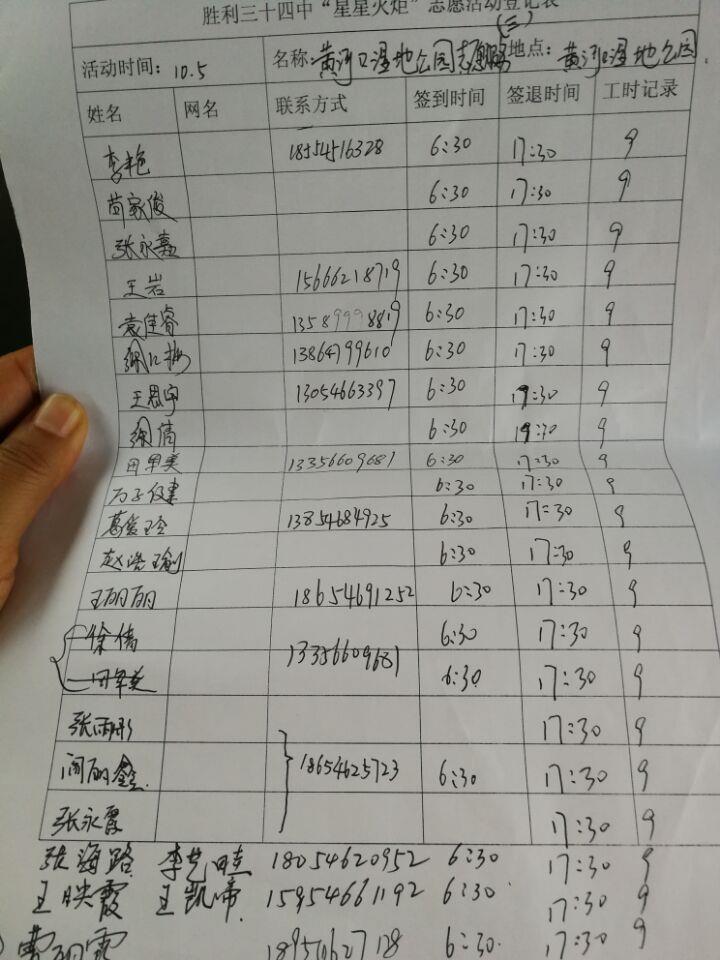 胜利三十四中“星星火炬”志愿活动登记表
(三)
活动时间：10.5 名称：黄河口湿地公园志愿 地点：黄河口湿地公园
姓名 网名 联系方式 签到时间 签退时间 工时记录
李艳 18554516328 6:30 17:30 9
苗家俊 6:30 17:30 9
张永嘉 6:30 17:30 9
王岩 15666218719 6:30 17:30 9
袁佳睿 13589998819 6:30 17:30 9
13864799610 6:30 17:30 9
王思宇 13054663397 6:30 17:30 9
徐倩 6:30 17:30 9
田翠美 13356609681 6:30 17:30 9
6:30 17:30 9
葛爱玲 13854684925 6:30 17:30 9
赵浩 6:30 17:30 9
王丽丽 18654691252 6:30 17:30 9
徐倩 6:30 17:30 9
田翠美 13356609681 6:30 17:30 9
张雨彤 17:30 9
闫丽鑫 18654625723 6:30 17:30 9
张永霞 17:30 9
张海路 李艺畦 18054620952 6:30 17:30 9
王映霞 王凯帝 15954661192 6:30 17:30 9
曹丽霞 6:30 17:30 9